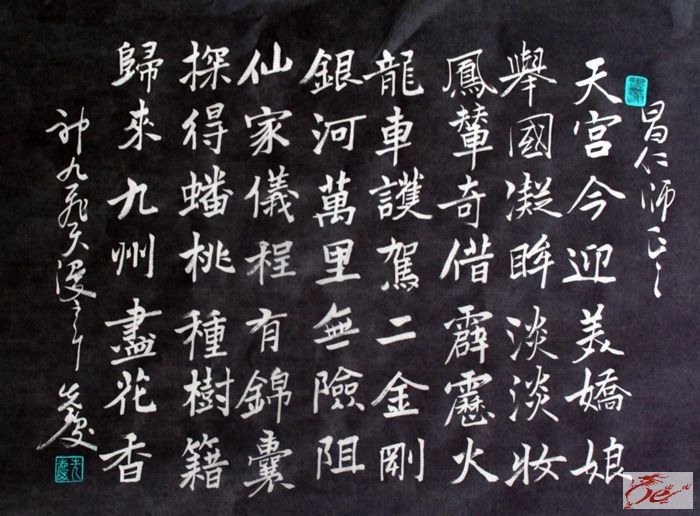 昌仁师正之
天宮今迎美嬌娘
舉國凝眸淡淡妝
鳳輦奇借霹靂火
龍車護駕二金剛
銀河萬里無險阻
仙家儀程有錦囊
探得蟠桃種樹籍
歸來九州盡花香
神九飛天漫